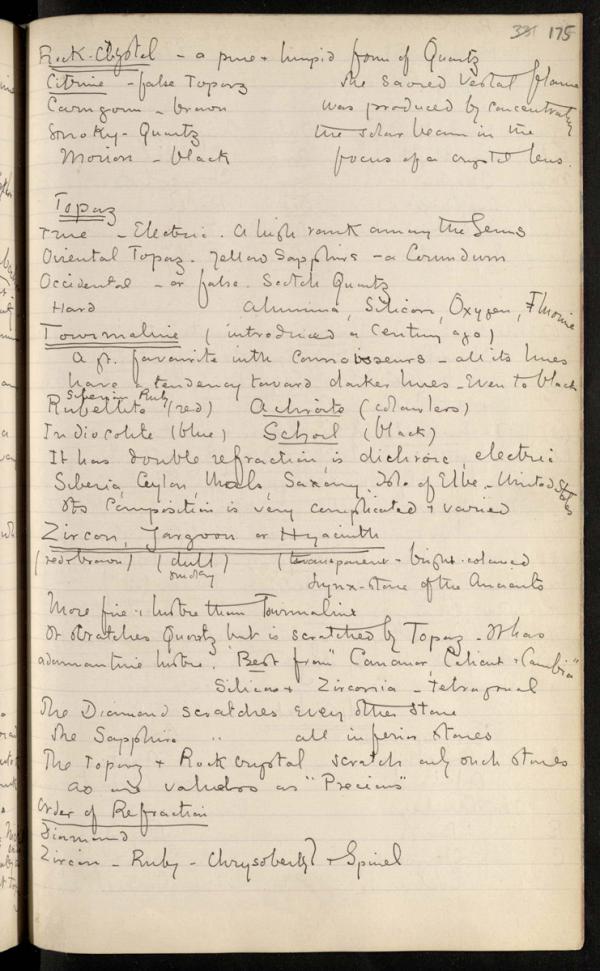 331 175
Rock-Crystal - a pure & limpid form of Quartz
Citrine - false Topaz
Cairngorm - brown
Smoky - Quartz
Morion - black
The Sacred Vestal flame
was produced by concentrating
the solar beam in the
focus of a crystal lens.
Topaz
True - Electric. A high rank among the Gems
Oriental Topaz. Yellow Sapphire - a Corundum
Occidental - or false. Scotch Quartz
Hard Alumina, Silicon, Oxygen, Fluorine
Tourmaline (introduced a Century ago)
A gt. favourite with Connoisseurs - all its hues
have a tendency toward darker hues - Even to black
Siberian Ruby
Rubellite (red) Achroite (colourless)
Indicolite (blue) Schorl (black)
It has double refraction, is dichroic, electric
Siberia, Ceylon, Urals, Saxony, Isle of Elbe - United States
Its Composition is very complicated & varied
Zircon, Jargoon or Hyacinth
(red & brown) (dull smoky) (transparent - bright-coloured
Lynx-stone of the Ancients
More fire & lustre than Tourmaline
It scratches Quartz but is scratched by Topaz - It has
adamantine lustre. "Best from" Cananor, Calicut & Cambia"
Silica & Zirconia - tetragonal
The Diamond scratches every other stone
The Sapphire " all inferior stones
The Topaz & Rock crystal scratch only such stones
as are valueless as "Precious"
Order of Refraction
Diamond
Zircon - Ruby - Chrysoberyl & Spinel